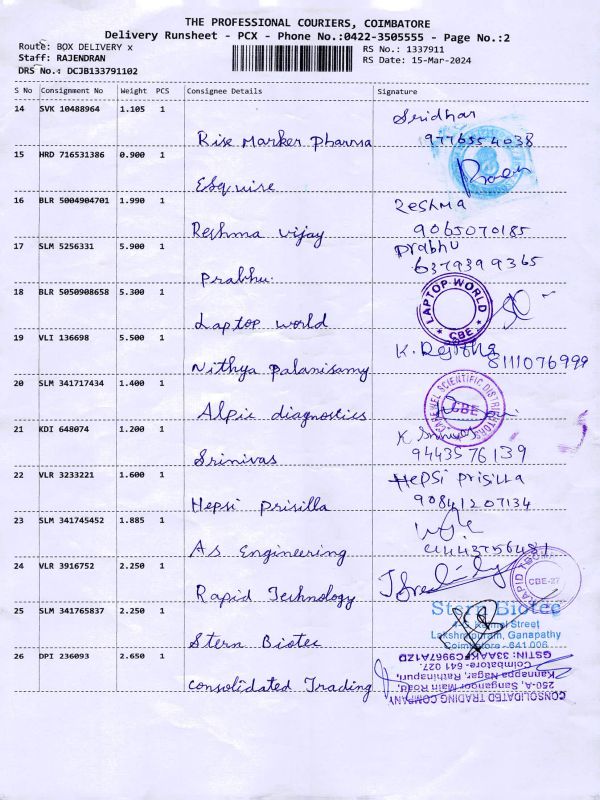 THE PROFESSIONAL COURIERS, COIMBATORE
Delivery Runsheet - PCX - Phone No.:0422-3505555 - Page No.:2
Route: BOX DELIVERY x
RS No.: 1337911
Staff: RAJENDRAN
RS Date: 15-Mar-2024
DRS No.: DCJB133791102
S No Consignment No Weight PCS Consignee Details Signature
14 SVK 10488964 1.105 1
Sridhar
Rise Marker Pharma 9776554038
15 HRD 716531386 0.900 1
Esquire
16 BLR 5004904701 1.990 1
Reshma
Reshma vijay 9065070185
17 SLM 5256331 5.900 1
Prabhu
Prabhu. 6379399365
18 BLR 5050908658 5.300 1
Laptop world
LAPTOP WORLD
CBE
19 VLI 136698 5.500 1
Nithya Palanisamy 8111076999
20 SLM 341717434 1.400 1
SCIENTIFIC DISTRIBUTORS
CBE
21 KDI 648074 1.200 1
K Srinivas
Srinivas 9443576139
22 VLR 3233221 1.600 1
Hepsi Prisilla
Hepsi Prisilla 90841207134
23 SLM 341745452 1.885 1
As Engineering
24 VLR 3916752 2.250 1
Rapid Technology
CBE-27
25 SLM 341765837 2.250 1
Stern Biotec
Stern Biotec
Street
Lakshmipuram, Ganapathy
Coimbatore - 641 006
26 DPI 236093 2.650 1
Consolidated Trading
CONSOLIDATED TRADING COMPANY
250-A, Sanganoor Main Road,
Kannappa Nagar, Rathinapuri,
Coimbatore- 641 027.